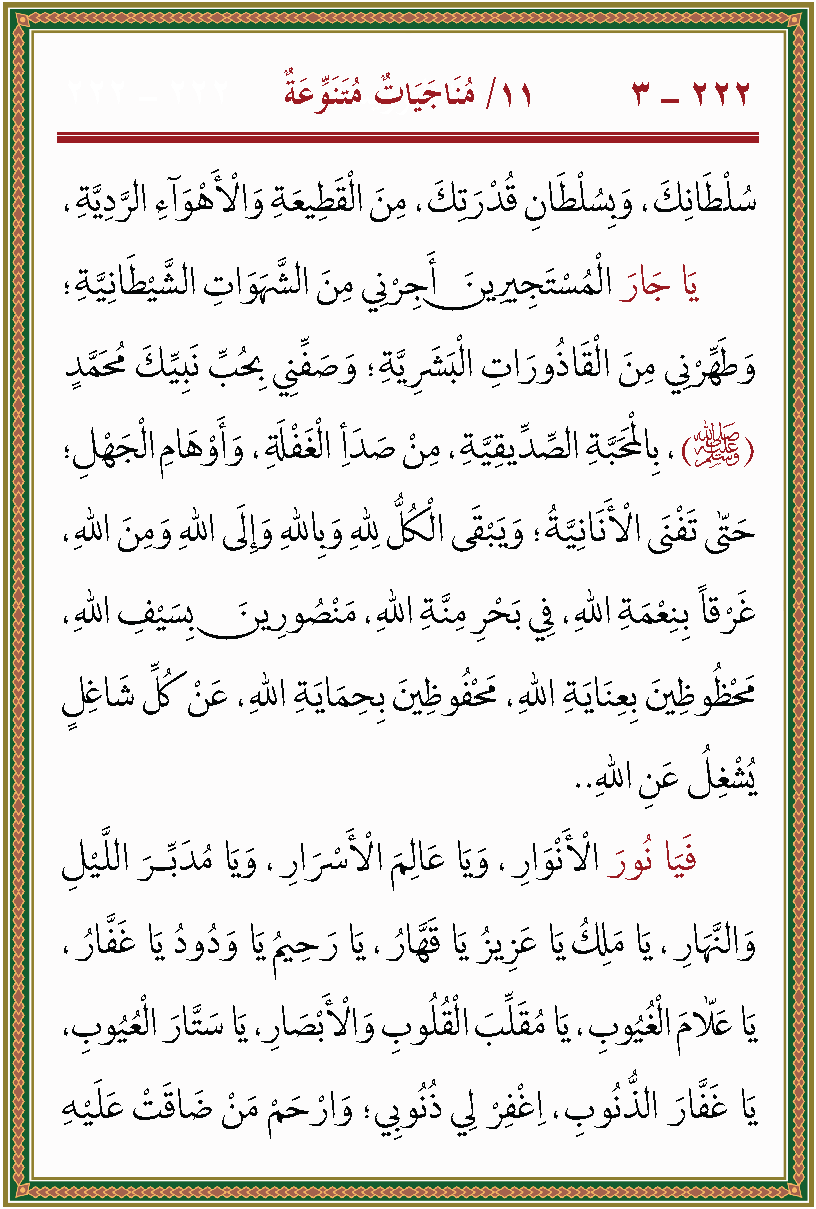 ٢٢٢ – ٣ ١١/ مُنَاجَيَاتٌ مُتَنَوِّعَةٌ
سُلْطَانِكَ، وَبِسُلْطَانِ قُدْرَتِكَ، مِنَ الْقَطِيعَةِ وَالْأَهْوَآءِ الرَّدِيَّةِ،
يَا جَارَ الْمُسْتَجِيرِينَ أَجِرْنِي مِنَ الشَّهَوَاتِ الشَّيْطَانِيَّةِ؛
وَطَهِّرْنِي مِنَ الْقَاذُورَاتِ الْبَشَرِيَّةِ؛ وَصَفِّنِي بِحُبِّ نَبِيِّكَ مُحَمَّدٍ
(ﷺ)، بِالْمَحَبَّةِ الصِّدِّيقِيَّةِ، مِنْ صَدَأِ الْغَفْلَةِ، وَأَوْهَامِ الْجَهْلِ؛
حَتّٰى تَفْنَى الْأَنَانِيَّةُ؛ وَيَبْقَى الْكُلُّ لِلهِ وَبِاللهِ وَإِلَى اللهِ وَمِنَ اللهِ،
غَرْقاً بِنِعْمَةِ اللهِ، فِي بَحْرِ مِنَّةِ اللهِ، مَنْصُورِينَ بِسَيْفِ اللهِ،
مَحْظُوظِينَ بِعِنَايَةِ اللهِ، مَحْفُوظِينَ بِحِمَايَةِ اللهِ، عَنْ كُلِّ شَاغِلٍ
يُشْغِلُ عَنِ اللهِ..
فَيَا نُورَ الْأَنْوَارِ، وَيَا عَالِمَ الْأَسْرَارِ، وَيَا مُدَبِّـرَ اللَّيْلِ
وَالنَّهَارِ، يَا مَلِكُ يَا عَزِيزُ يَا قَهَّارُ، يَا رَحِيمُ يَا وَدُودُ يَا غَفَّارُ،
يَا عَلّٰامَ الْغُيُوبِ، يَا مُقَلِّبَ الْقُلُوبِ وَالْأَبْصَارِ، يَا سَتَّارَ الْعُيُوبِ،
يَا غَفَّارَ الذُّنُوبِ، اِغْفِرْ لِي ذُنُوبِي؛ وَارْحَمْ مَنْ ضَاقَتْ عَلَيْهِ